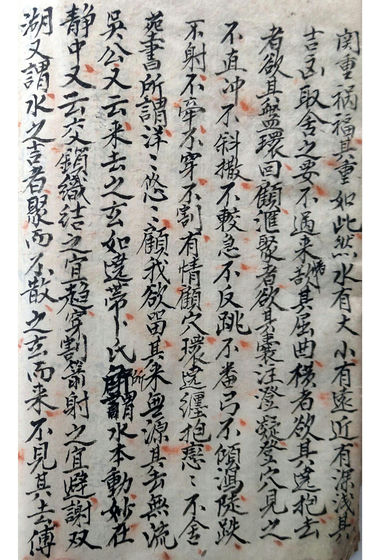 関重祸福其重如此然水有大小有遠近有深浅其
吉凶取舍之要不過来割其屈曲横者欲其遶抱去
者欲其盤環回顧滙聚者欲其囊注澄凝登穴見之
不直冲不斜撒不較急不反跳不番弓不傾瀉陡跌
不射不牽不穿不割有情顧穴環遶纏抱恋〻不舍
苑書所謂洋〻悠〻顧我欲留其来無源其去無流
吳公又云来去之玄如遶帶卜氏所謂水本動妙在
静中又云交鎖織结之宜趋穿割箭射之宜避謝双
湖又謂水之吉者聚而不散之玄而来不見其去傅